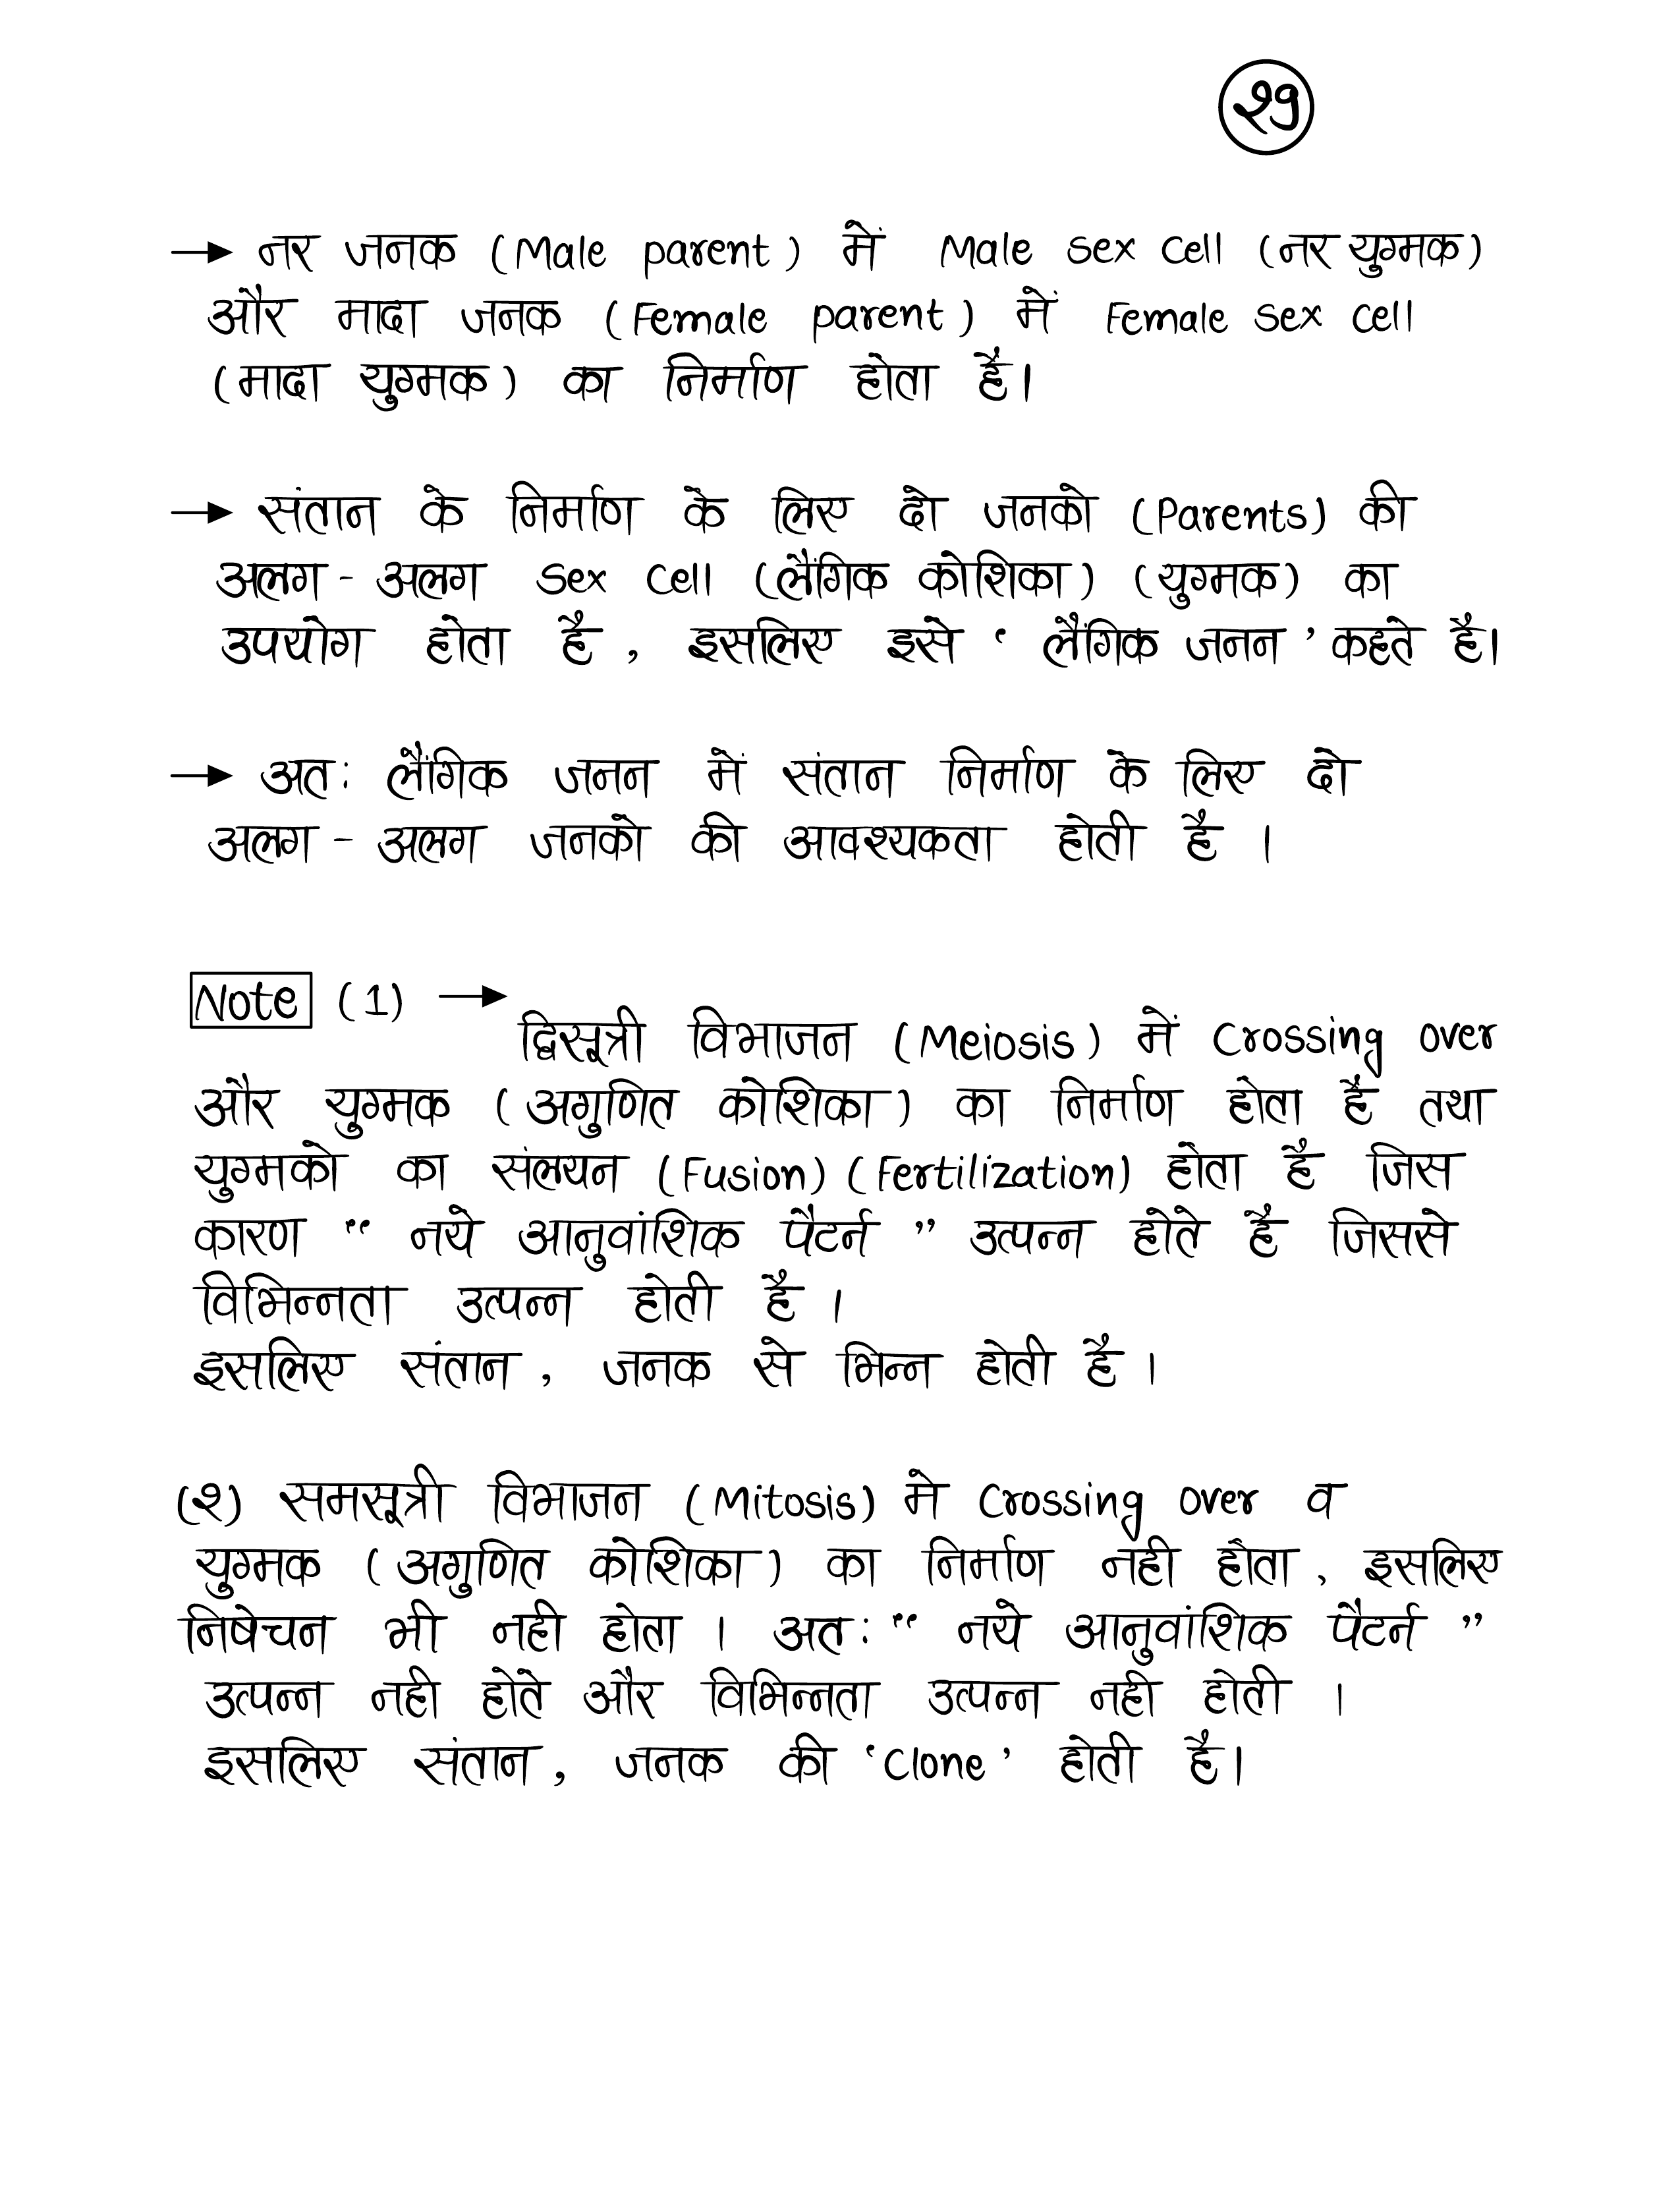 २१
→ नर जनक (Male parent) में Male sex cell (नर युग्मक)
और मादा जनक (Female parent) में Female sex cell
(मादा युग्मक) का निर्माण होता है।
→ संतान के निर्माण के लिए दो जनको (Parents) की
अलग - अलग sex cell (लैंगिक कोशिका) (युग्मक) का
उपयोग होता है, इसलिए इसे ‘ लैंगिक जनन ’ कहते है।
→ अतः लैंगिक जनन में संतान निर्माण के लिए दो
अलग - अलग जनको की आवश्यकता होती है ।
Note (1) →
द्विसूत्री विभाजन (Meiosis) में Crossing over
और युग्मक (अगुणित कोशिका) का निर्माण होता है तथा
युग्मको का संलयन (Fusion) (Fertilization) होता है जिस
कारण “ नये आनुवांशिक पैटर्न ” उत्पन्न होते है जिससे
विभिन्नता उत्पन्न होती है ।
इसलिए संतान, जनक से भिन्न होती है ।
(२) समसूत्री विभाजन (Mitosis) मे Crossing over व
युग्मक (अगुणित कोशिका) का निर्माण नही होता, इसलिए
निषेचन भी नही होता । अतः “ नये आनुवांशिक पैटर्न ”
उत्पन्न नही होते और विभिन्नता उत्पन्न नही होती ।
इसलिए संतान, जनक की ‘Clone’ होती है।